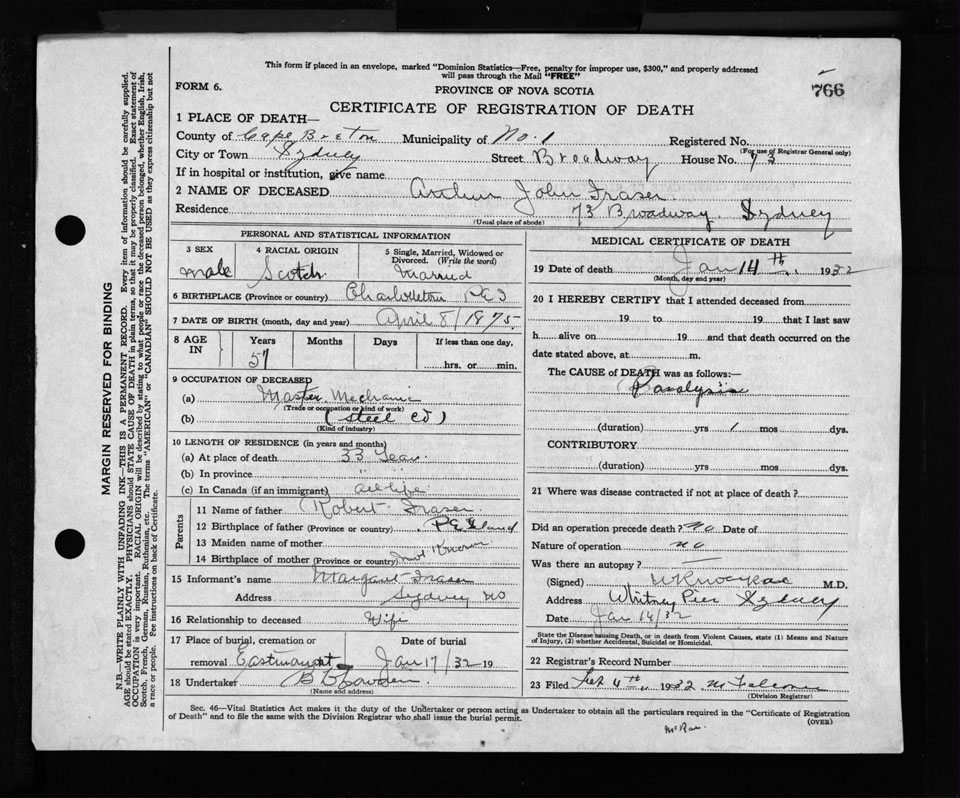 This form if placed in an envelope, marked "Dominion Statistics—Free, penalty for improper use, $300," and properly addressed
will pass through the Mail "FREE"
FORM 6.
PROVINCE OF NOVA SCOTIA
766
CERTIFICATE OF REGISTRATION OF DEATH
1 PLACE OF DEATH—
County of Cape Breton Municipality of No. 1 Registered No.
(For use of Registrar General only)
City or Town Sydney Street Broadway House No. 73
If in hospital or institution, give name
2 NAME OF DECEASED Arthur John Fraser
Residence 73 Broadway. Sydney
(Usual place of abode)
PERSONAL AND STATISTICAL INFORMATION
3 SEX 4 RACIAL ORIGIN 5 Single, Married, Widowed or
Divorced. (Write the word)
male Scotch Married
6 BIRTHPLACE (Province or country) Charlottetown P E I
7 DATE OF BIRTH (month, day and year) April 8/1875.
8 AGE IN Years Months Days If less than one day,
57 hrs. or min.
9 OCCUPATION OF DECEASED
(a) Master Mechanic
(Trade or occupation or kind of work)
(b) (Steel Co)
(Kind of industry)
10 LENGTH OF RESIDENCE (in years and months)
(a) At place of death 33 Year.
(b) In province " "
(c) In Canada (if an immigrant) all life
Parents
11 Name of father Robert Fraser
12 Birthplace of father (Province or country) P E Island
13 Maiden name of mother
14 Birthplace of mother (Province or country) not Known
15 Informant's name Margaret Fraser
Address Sydney NS
16 Relationship to deceased Wife
17 Place of burial, cremation or Date of burial
removal Eastmount Jan 17/32 19
18 Undertaker
(Name and address)
MEDICAL CERTIFICATE OF DEATH
19 Date of death Jan 14th, 1932
(Month, day and year)
20 I HEREBY CERTIFY that I attended deceased from
19 to 19 that I last saw
h alive on 19 and that death occurred on the
date stated above, at m.
The CAUSE of DEATH was as follows:—
Paralysis
(duration) yrs 1 mos dys.
CONTRIBUTORY
(duration) yrs mos dys.
21 Where was disease contracted if not at place of death?
Did an operation precede death? No Date of
Nature of operation no
Was there an autopsy? —
(Signed) M.D.
Address Whitney Pier Sydney
Date Jan 14/32
State the Disease causing Death, or in death from Violent Causes, state (1) Means and Nature
of Injury, (2) whether Accidental, Suicidal or Homicidal.
22 Registrar's Record Number
23 Filed 4th, 1932
(Division Registrar)
Sec. 46—Vital Statistics Act makes it the duty of the Undertaker or person acting as Undertaker to obtain all the particulars required in the "Certificate of Registration
of Death" and to file the same with the Division Registrar who shall issue the burial permit.
(OVER)
McRae
MARGIN RESERVED FOR BINDING
N.B.—WRITE PLAINLY WITH UNFADING INK—THIS IS A PERMANENT RECORD. Every item of information should be carefully supplied.
AGE should be stated EXACTLY. PHYSICIANS should STATE CAUSE OF DEATH in plain terms, so that it may be properly classified. Exact statement of
OCCUPATION is very important. RACIAL ORIGIN will be described by stating to what people or race the deceased person belonged, whether English, Irish,
Scotch, French, German, Russian, Ruthenian, etc. The terms "AMERICAN" or "CANADIAN" SHOULD NOT BE USED as they express citizenship but not
a race or people. See instructions on back of Certificate.